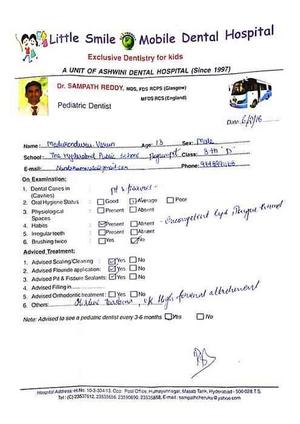 Little Smile Mobile Dental Hospital
Exclusive Dentistry for kids
A UNIT OF ASHWINI DENTAL HOSPITAL (Since 1997)
Dr. SAMPATH REDDY, MDS, PDS RCPS (Glasgow)
MFDS RCS (England)
Pediatric Dentist
Date:
Name: Varun Age: 13 Sex: Male
School: The Hyderabad Public School, Begumpet Class: 8th 'D'
E-mail: Phone:
On Examination:
1. Dental Caries in (Cavities)
2. Oral Hygiene Status Good Average Poor
3. Physiological Spaces Present Absent
4. Habits Present Absent
5. Irregular teeth Present Absent
6. Brushing twice Yes No
Advised Treatment:
1. Advised Scaling/Cleaning Yes No
2. Advised Flouride application: Yes No
3. Advised Pit & Fissure Sealants Yes No
4. Advised Filling in
5. Advised Orthodontic treatment: Yes No
6. Others: high frenal attachment
Note: Advised to see a pediatric dentist every 3-6 months Yes No
Hospital Address: H.No. 10-3-304/13, Opp. Post Office, Humayunnagar, Masab Tank, Hyderabad - 500 028. T.S.